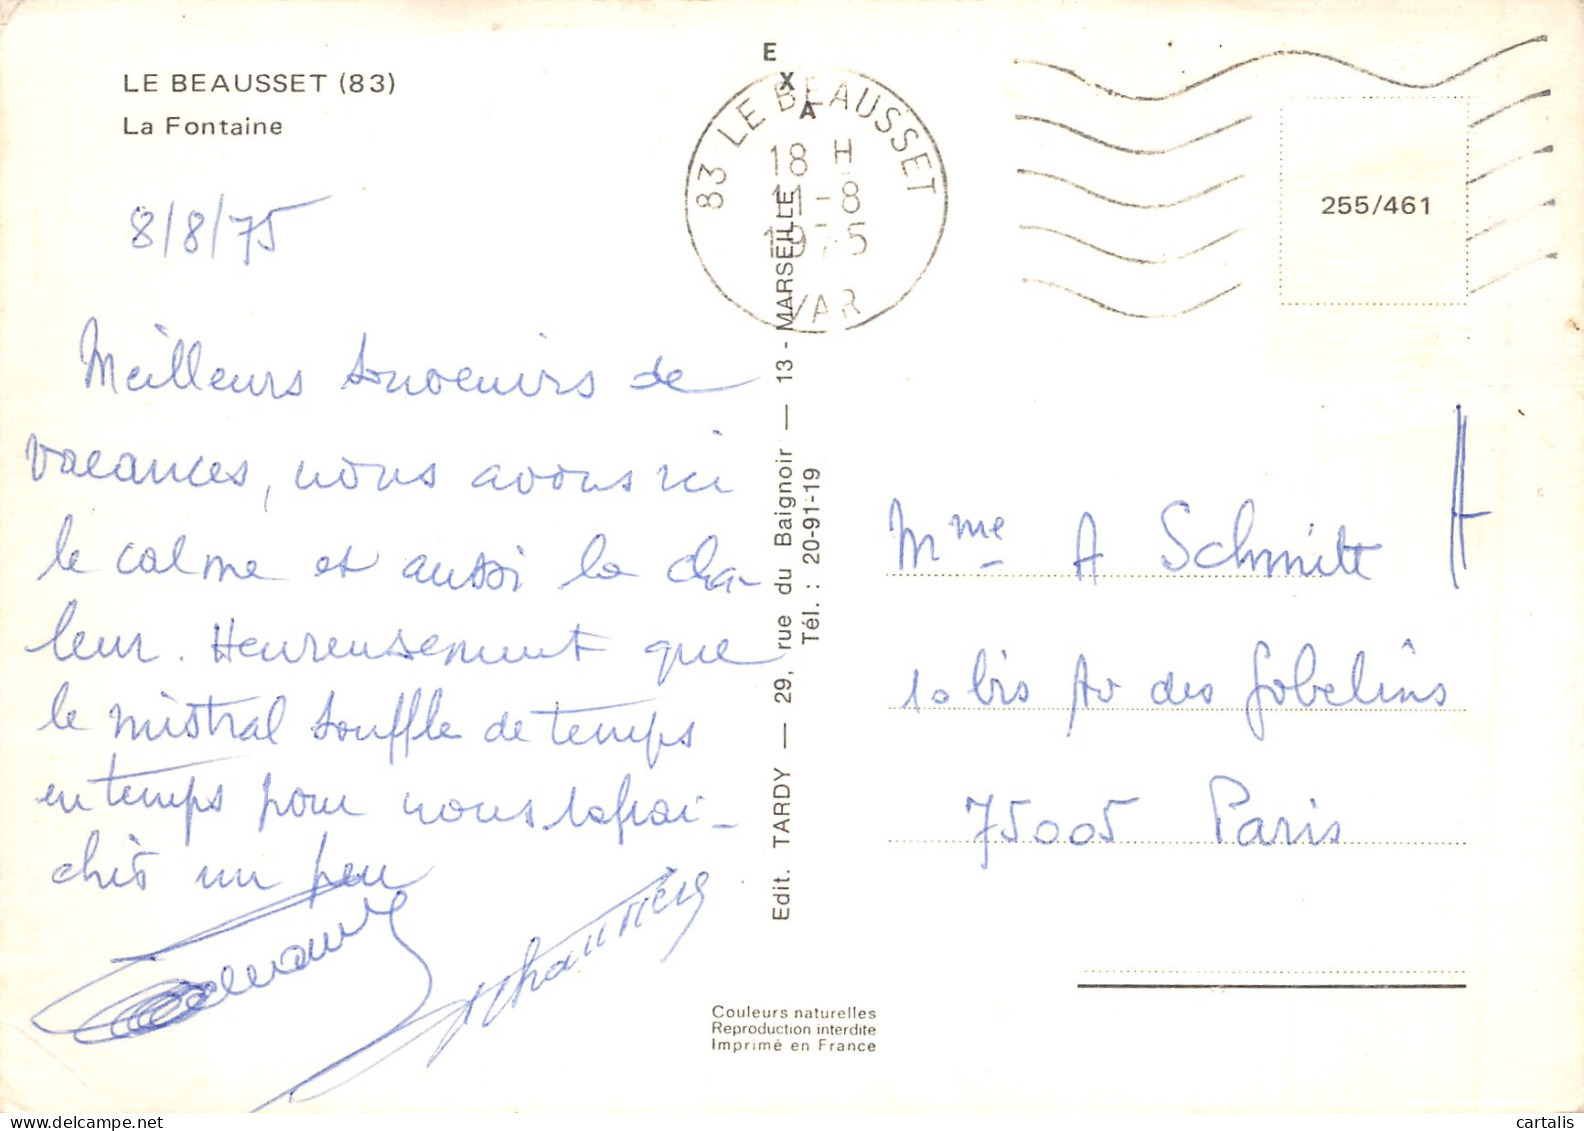 LE BEAUSSET (83)
La Fontaine
8/8/75
Meilleurs souvenirs de
vacances, nous avons ici
le calme et aussi la cha-
leur. Heureusement que
le mistral souffle de temps
en temps pour nous rafrai-
chir un peu
EXA
83 LE BEAUSSET
18 H
11-8
1975
VAR
Edit. TARDY — 29, rue du Baignoir — 13 - MARSEILLE
Tél. : 20-91-19
255/461
Mme A Schmitt
10 bis Av des Gobelins
75005 Paris
Couleurs naturelles
Reproduction interdite
Imprimé en France
cartalis